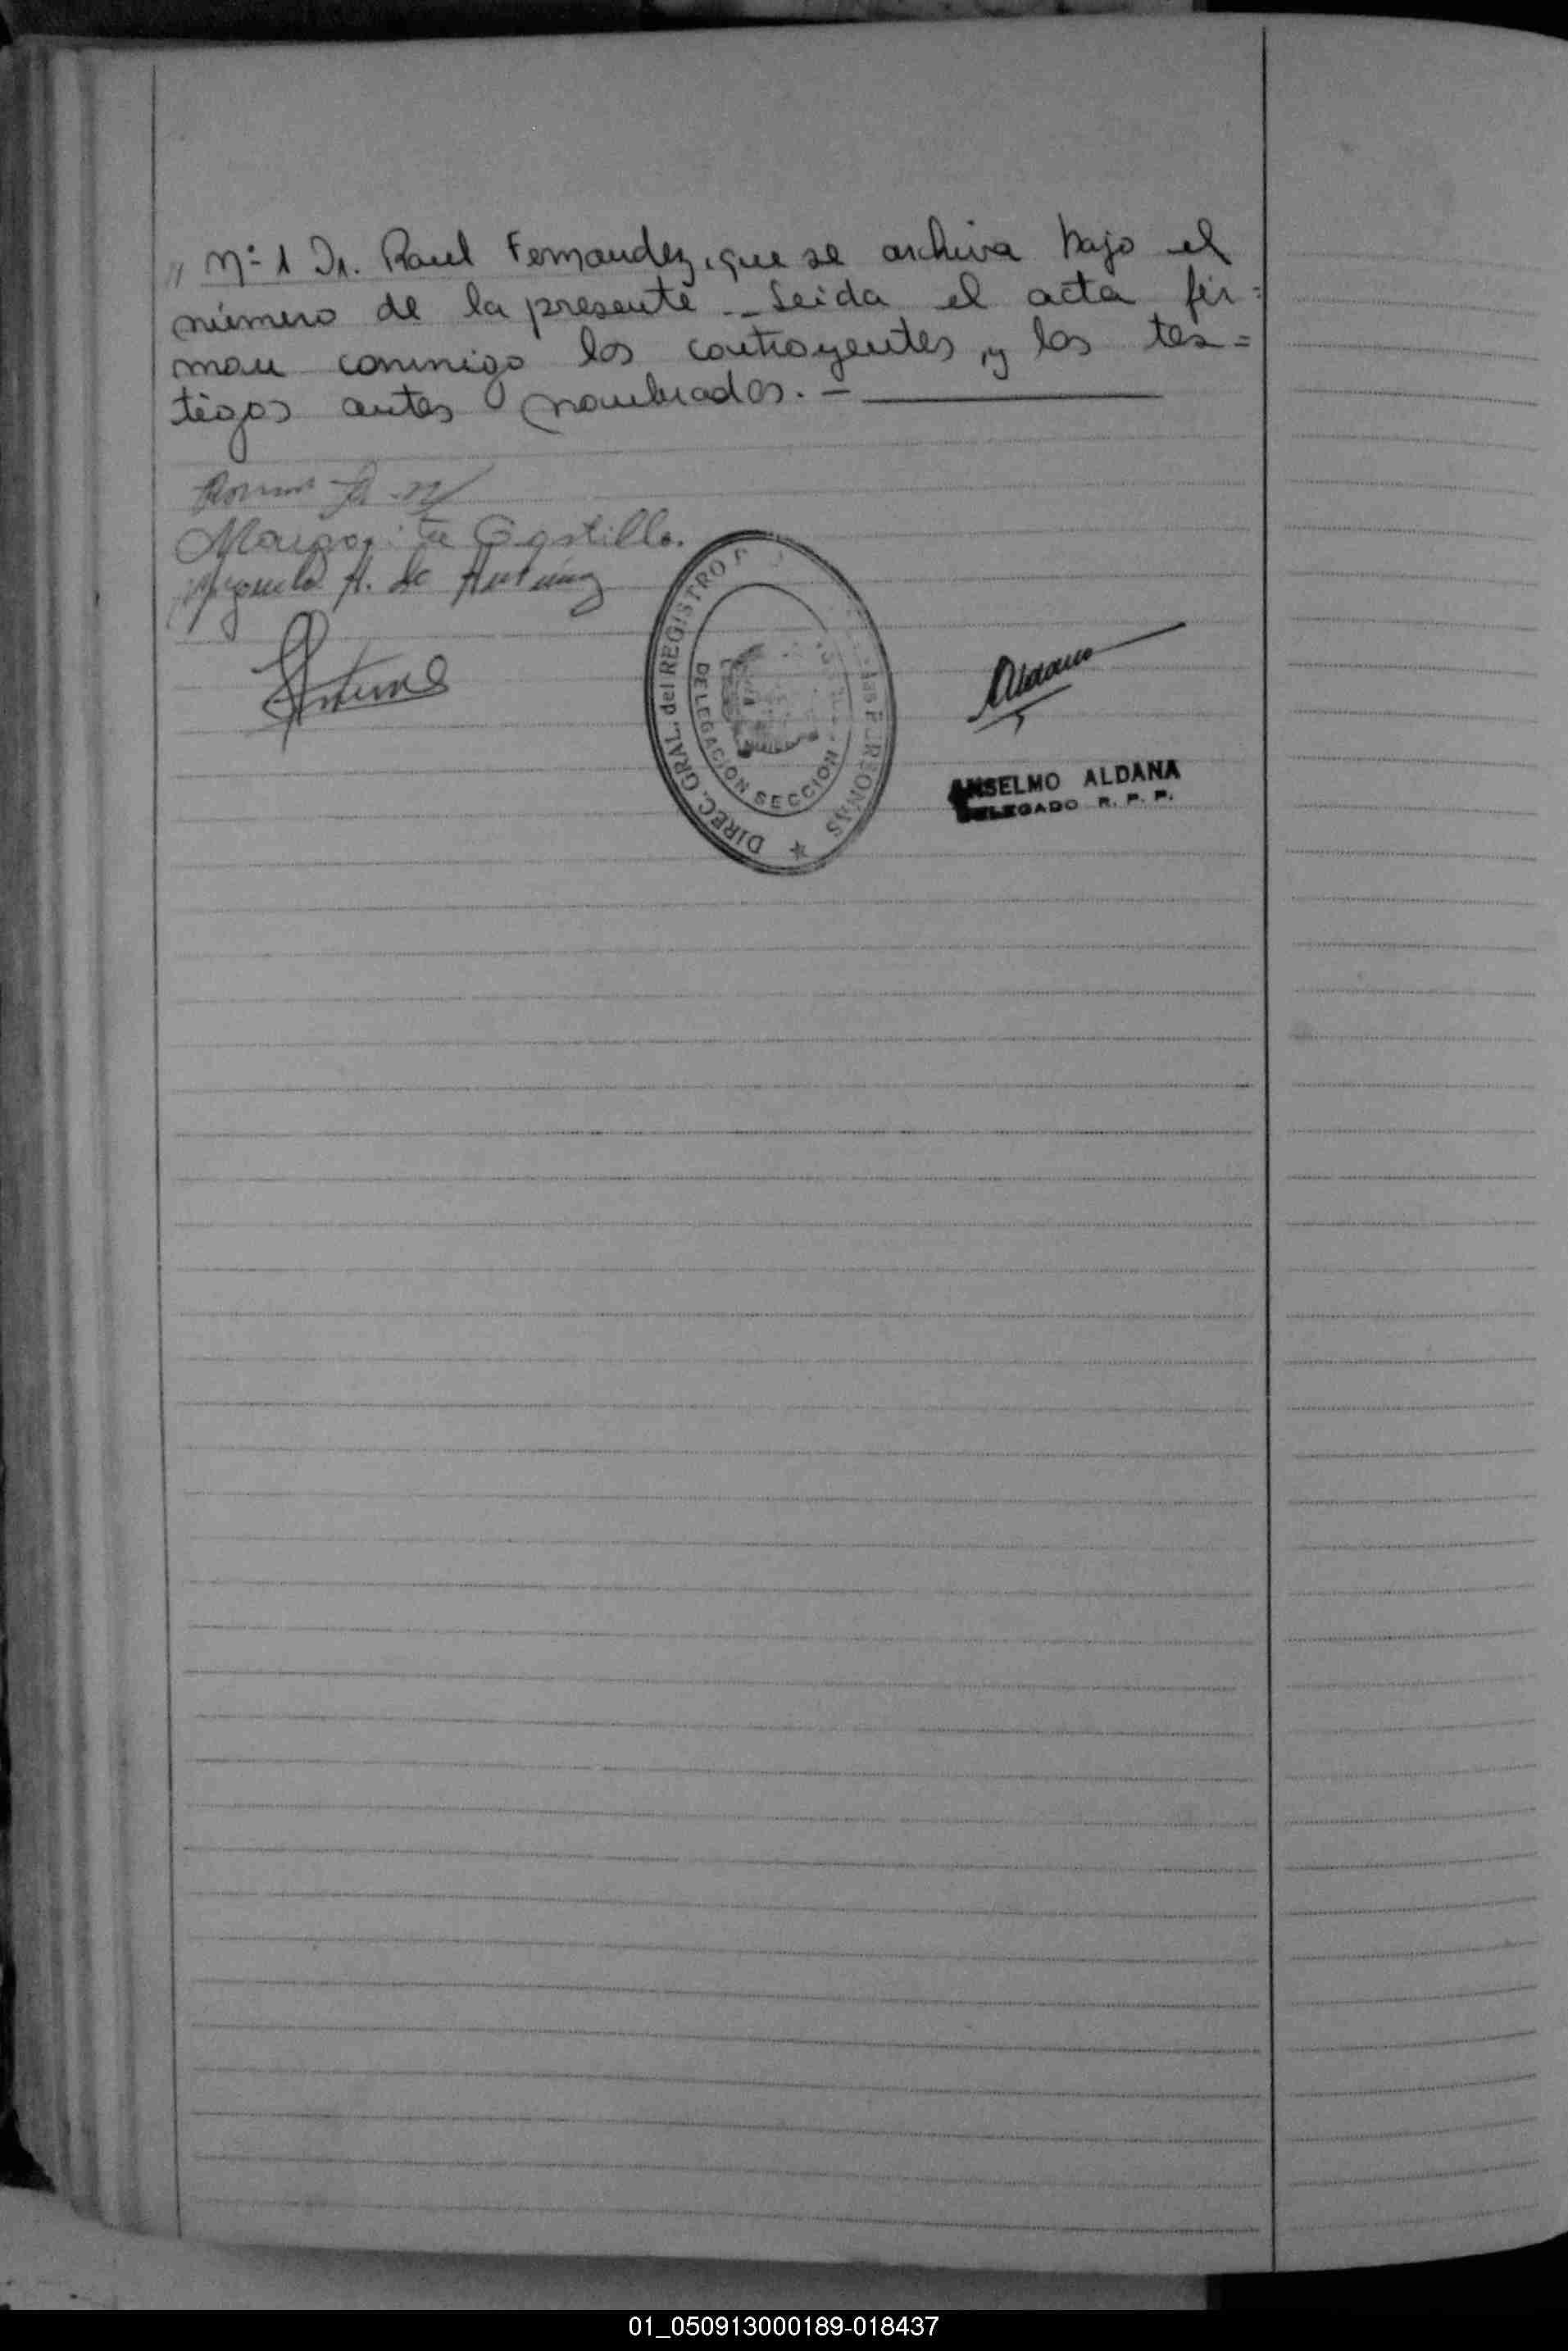 „ Nº 1 Dr. Raul Fernandez, que se archiva bajo el
número de la presente _ Leida el acta fir=
man conmigo los contrayentes, y los tes=
tigos antes nombrados. -
Margarita Castillo.
A. de Antunez
DIREC. GRAL. del REGISTRO
de las PERSONAS
DELEGACION SECCION
Aldana
ANSELMO ALDANA
DELEGADO R. P. P.
01_050913000189-018437